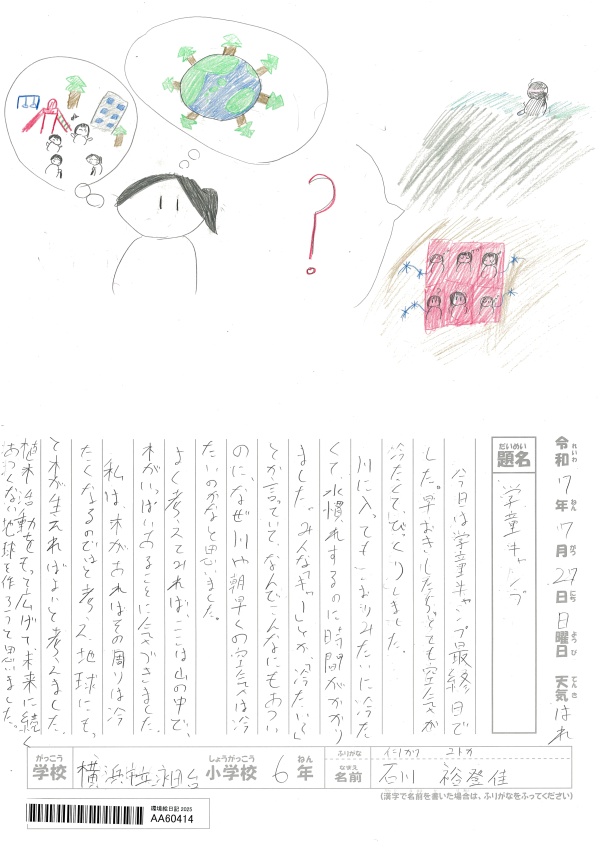 令和7年7月27日 日曜日 天気 はれ
れいわ ねん がつ にち ようび てんき
だいめい
題名 学童キャンプ
今日は学童キャンプ最終日で
した。早おきしたら、とても空気が
冷たくてびっくりしました。
川に入ってもこおりみたいに冷た
くて、水慣れするのに時間がかかり
ました。みんな「ギャー」とか、「冷たい」
とか言っていて、なんでこんなにもあつい
のに、なぜ川や朝早くの空気は冷
たいのかなと思いました。
よく考えてみれば、ここは山の中で、
木がいっぱいあることに気づきました。
私は、木があればその周りは冷
たくなるのではと考え、地球にも、も
っと木が生えればよいと考えました。
植木活動をもっと広げて未来に続く
あつくない地球を作ろうって思いました。
がっこう しょうがっこう ねん ふりがな
学校 小学校 6年
なまえ
名前 石川
(漢字で名前を書いた場合は、ふりがなをふってください)
環境絵日記 2025
AA60414
?